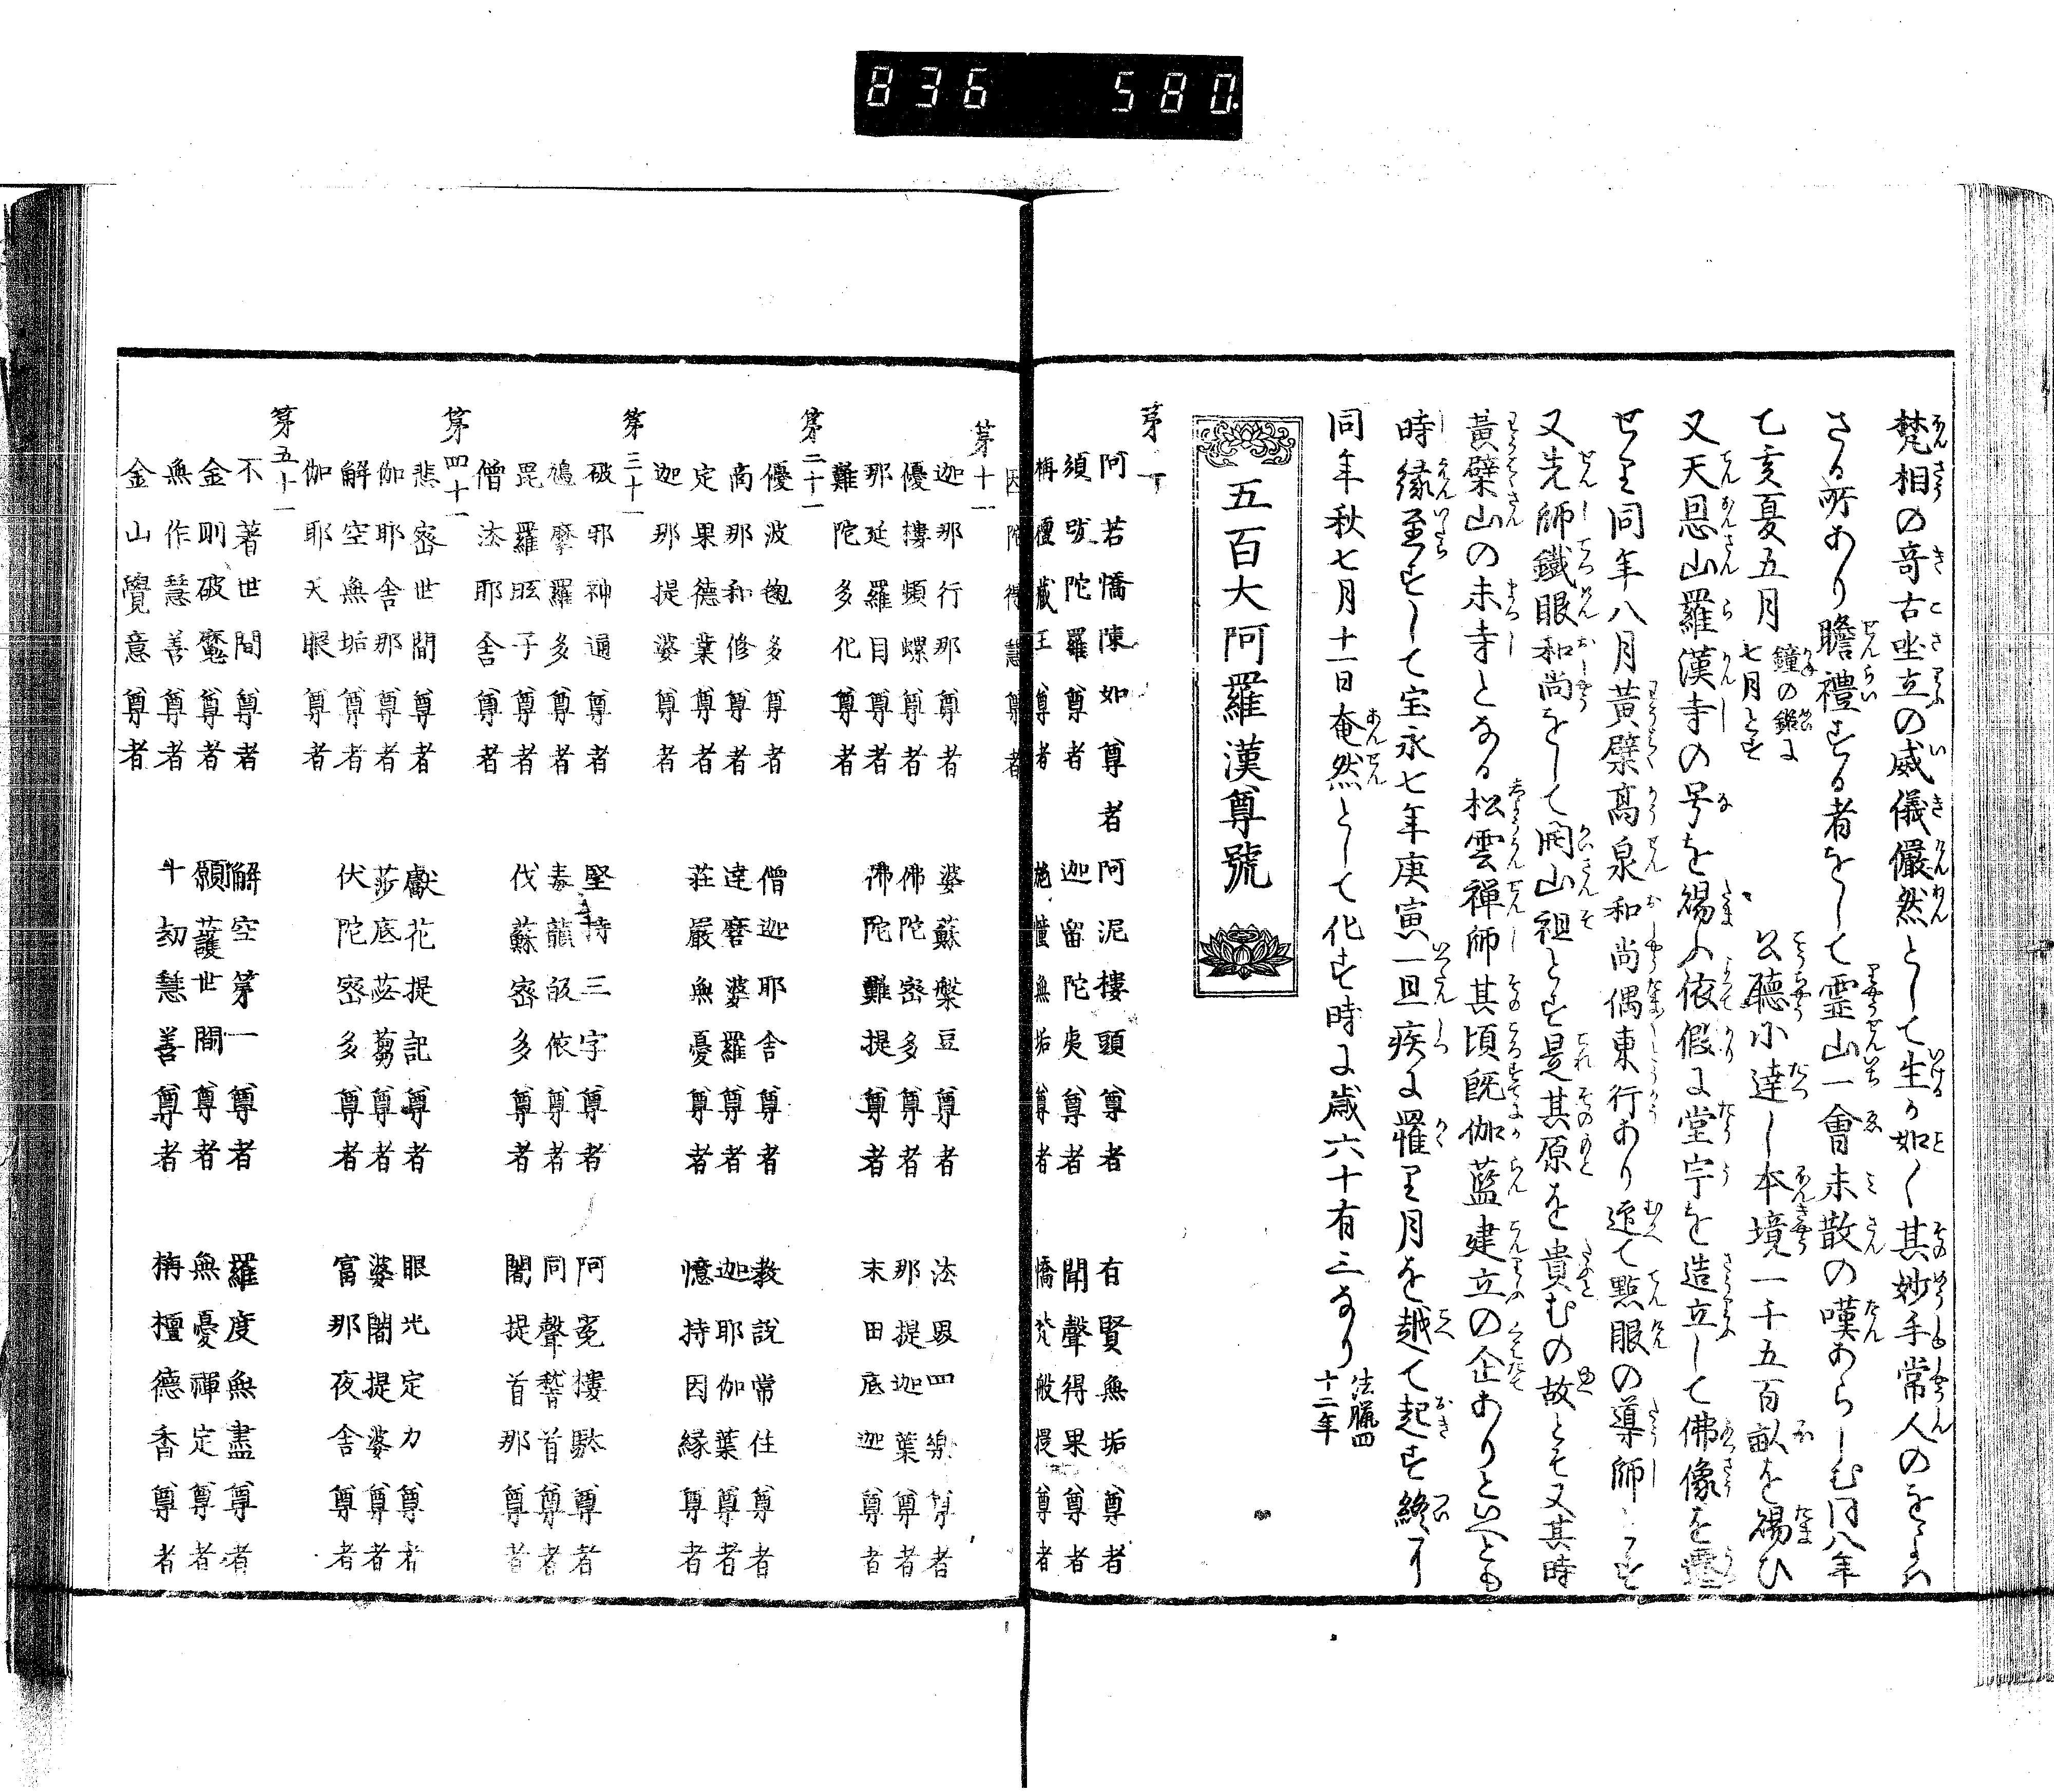 836 580.
梵相の奇古坐立の威儀儼然として生るが如く其妙手常人のをよハ
さる所あり瞻禮する者をして霊山一會未散の嘆あらしむ同八年
乙亥夏五月
鐘の銘に
七月とす
公聴に達し本境一千五百畝を賜ひ
又天恩山羅漢寺の号を賜ふ依假に堂宇を造立して佛像を
せり同年八月黄檗高泉和尚偶東行あり迎て點眼の導師とす
又先師鐵眼和尚をして開山祖とす是其原を貴むの故とそ又其時
黄檗山の末寺となる松雲禅師其頃既伽藍建立の企ありといへとも
時縁至すして宝永七年庚寅一旦疾に罹り月を越て起す終に
同年秋七月十一日奄然として化す時に歳六十有三なり
法臘四
十二年
五百大阿羅漢尊號
第一
阿若憍陳如尊者 阿泥樓頭尊者 有賢無垢尊者
須跋陀羅尊者 迦留陀夷尊者 聞聲得果尊者
栴檀藏王尊者 施幢無垢尊者 憍梵般提尊者
因陀得慧尊者
第十一
迦那行那尊者 婆蘇槃豆尊者 法界四樂尊者
優樓頻螺尊者 佛陀密多尊者 那提迦葉尊者
那延羅目尊者 佛陀難提尊者 末田底迦尊者
難陀多化尊者
第二十一
優波毱多尊者 僧迦耶舍尊者 教說常住尊者
商那和修尊者 達磨婆羅尊者 迦耶伽葉尊者
定果德業尊者 莊嚴無憂尊者 憶持因緣尊者
迦那提婆尊者
第三十一
破邪神通尊者 堅持三字尊者 阿㝹樓馱尊者
鳩摩羅多尊者 毒龍皈依尊者 同聲稽首尊者
毘羅胝子尊者 伐蘇密多尊者 闍提首那尊者
僧法耶舍尊者
第四十一
悲密世間尊者 獻花提記尊者 眼光定力尊者
伽耶舍那尊者 莎底苾蒭尊者 婆闍提婆尊者
解空無垢尊者 伏陀密多尊者 富那夜舍尊者
伽耶天眼尊者
第五十一
不著世間尊者 解空第一尊者 羅度無盡尊者
金剛破魔尊者 願護世間尊者 無憂禪定尊者
無作慧善尊者 十劫慧善尊者 栴檀德香尊者
金山覺意尊者